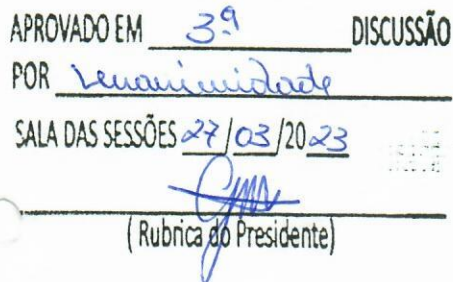 APROVADO EM 3ª DISCUSSÃO
POR unanimidade
SALA DAS SESSÕES 27/03/2023
( Rubrica do Presidente)